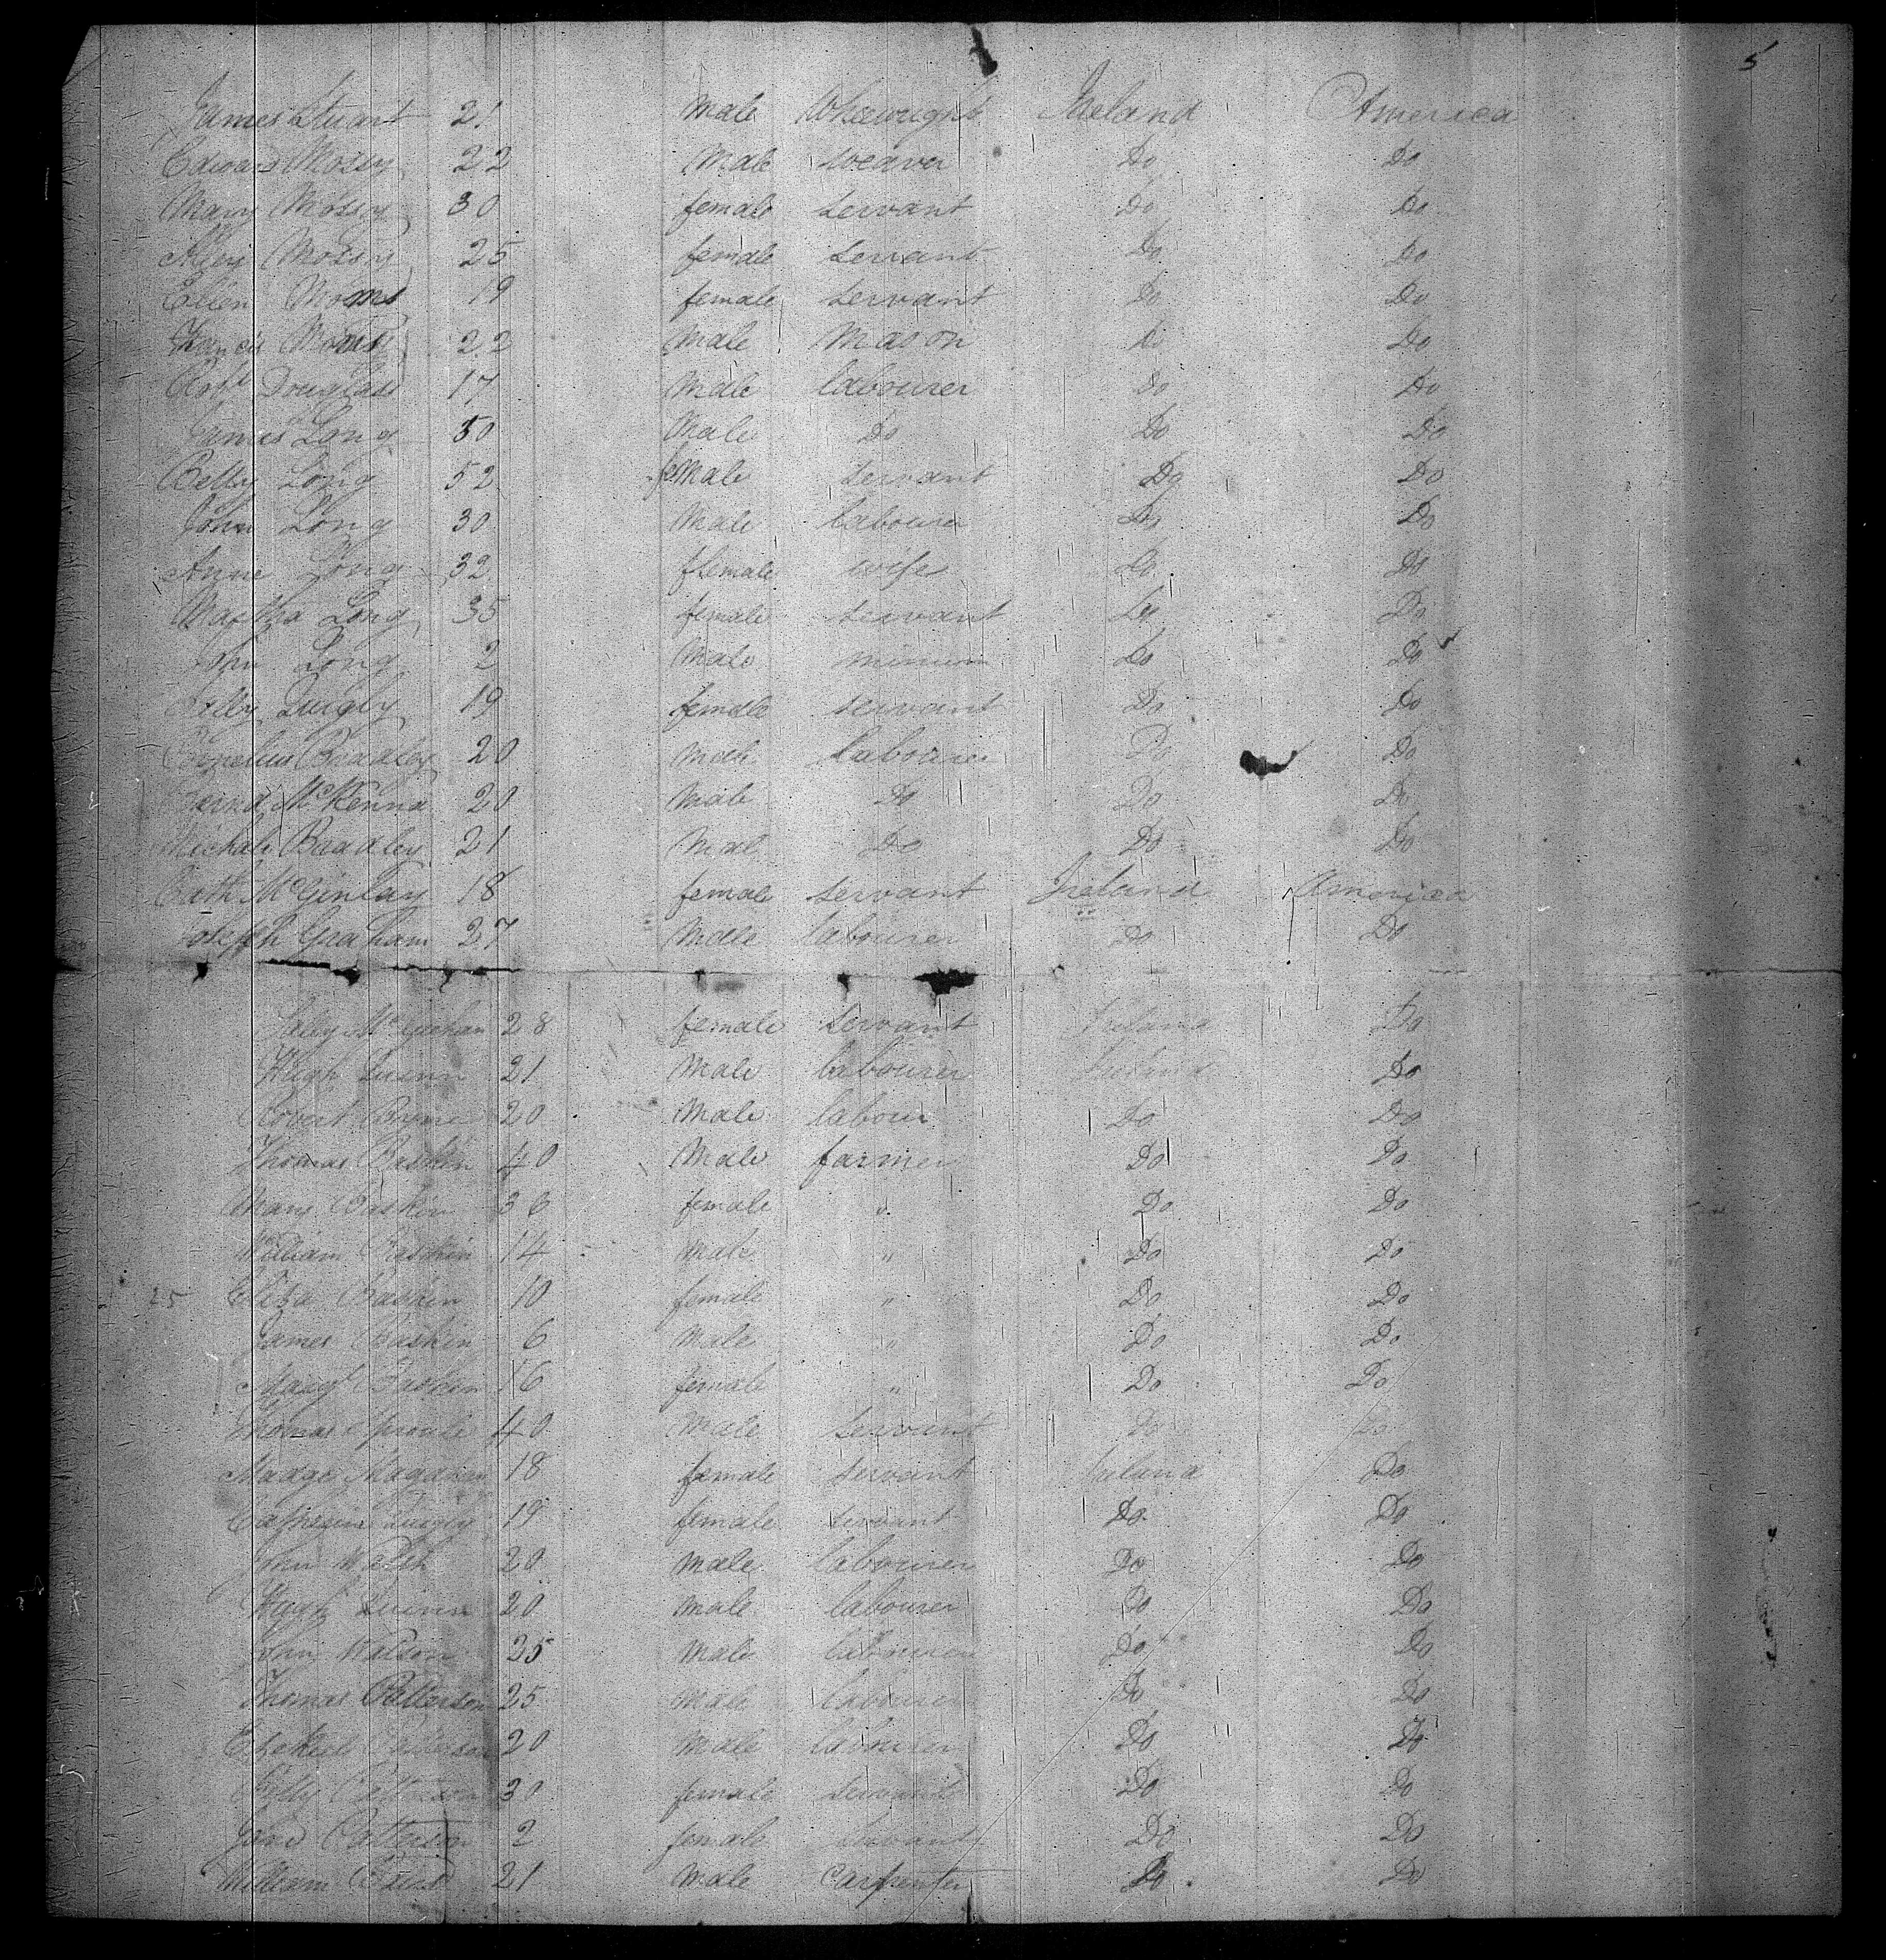 5
James Stuart 21 Male Wheewright Ireland America
Edward Mossy 22 Male weaver Do Do
Mary Mossy 30 female servant Do Do
Mossy 25 female servant Do Do
Ellen 19 female servant Do Do
Francis 22 Male Mason Do Do
Robt Douglass 17 Male labourer Do Do
James Long 50 Male Do Do Do
Betty Long 52 feMale servant Do Do
John Long 30 Male labourer Do Do
Anne Long 32 female wife Do Do
Martha Long 35 female servant Do Do
John Long 2 Male Do Do
Quigly 19 female servant Do Do
Cornelius Bradley 20 Male labourer Do Do
McKenna 20 Male Do Do Do
Michale Bradley 21 Male Do Do Do
Cath McGinlay 18 female servant Ireland America
Joseph Graham 27 Male labourer Do Do
28 female servant Ireland Do
Hugh Quinn 21 Male labourer Ireland Do
Robert 20 Male labour Do Do
Thomas Baskin 40 Male farmer Do Do
Mary Baskin 36 female " Do Do
William Baskin 14 Male " Do Do
25 Eliza Baskin 10 female " Do Do
James Baskin 6 Male " Do Do
Margt Baskin 16 female " Do Do
Thomas Sproule 40 Male servant Do Do
Madge 18 female servant Ireland Do
Catherine Quigly 19 female servant Do Do
John Walsh 20 male labourer Do Do
Hugh Quinn 20 male labourer Do Do
John 25 male labourer Do Do
Thomas Patterson 25 male labourer Do Do
Patterson 20 male labourer Do Do
Patterson 30 female servant Do Do
Jane Patterson 2 female servant Do Do
William 21 male Carpenter Do Do